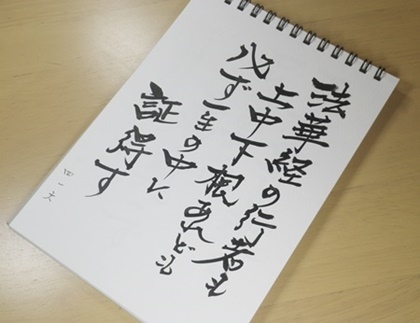 法華経の行者も
上中下根あれども
必ず一生の中に
証得す